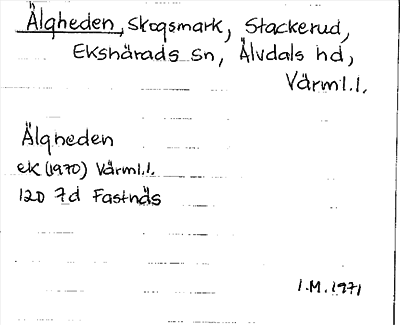 Älgheden, Skogsmark, Stackerud,
Ekshärads Sn, Älvdals hd,
Värml.l.
Älgheden
ek (1970) Värml.l.
12D 7d Fastnäs
I.M. 1971